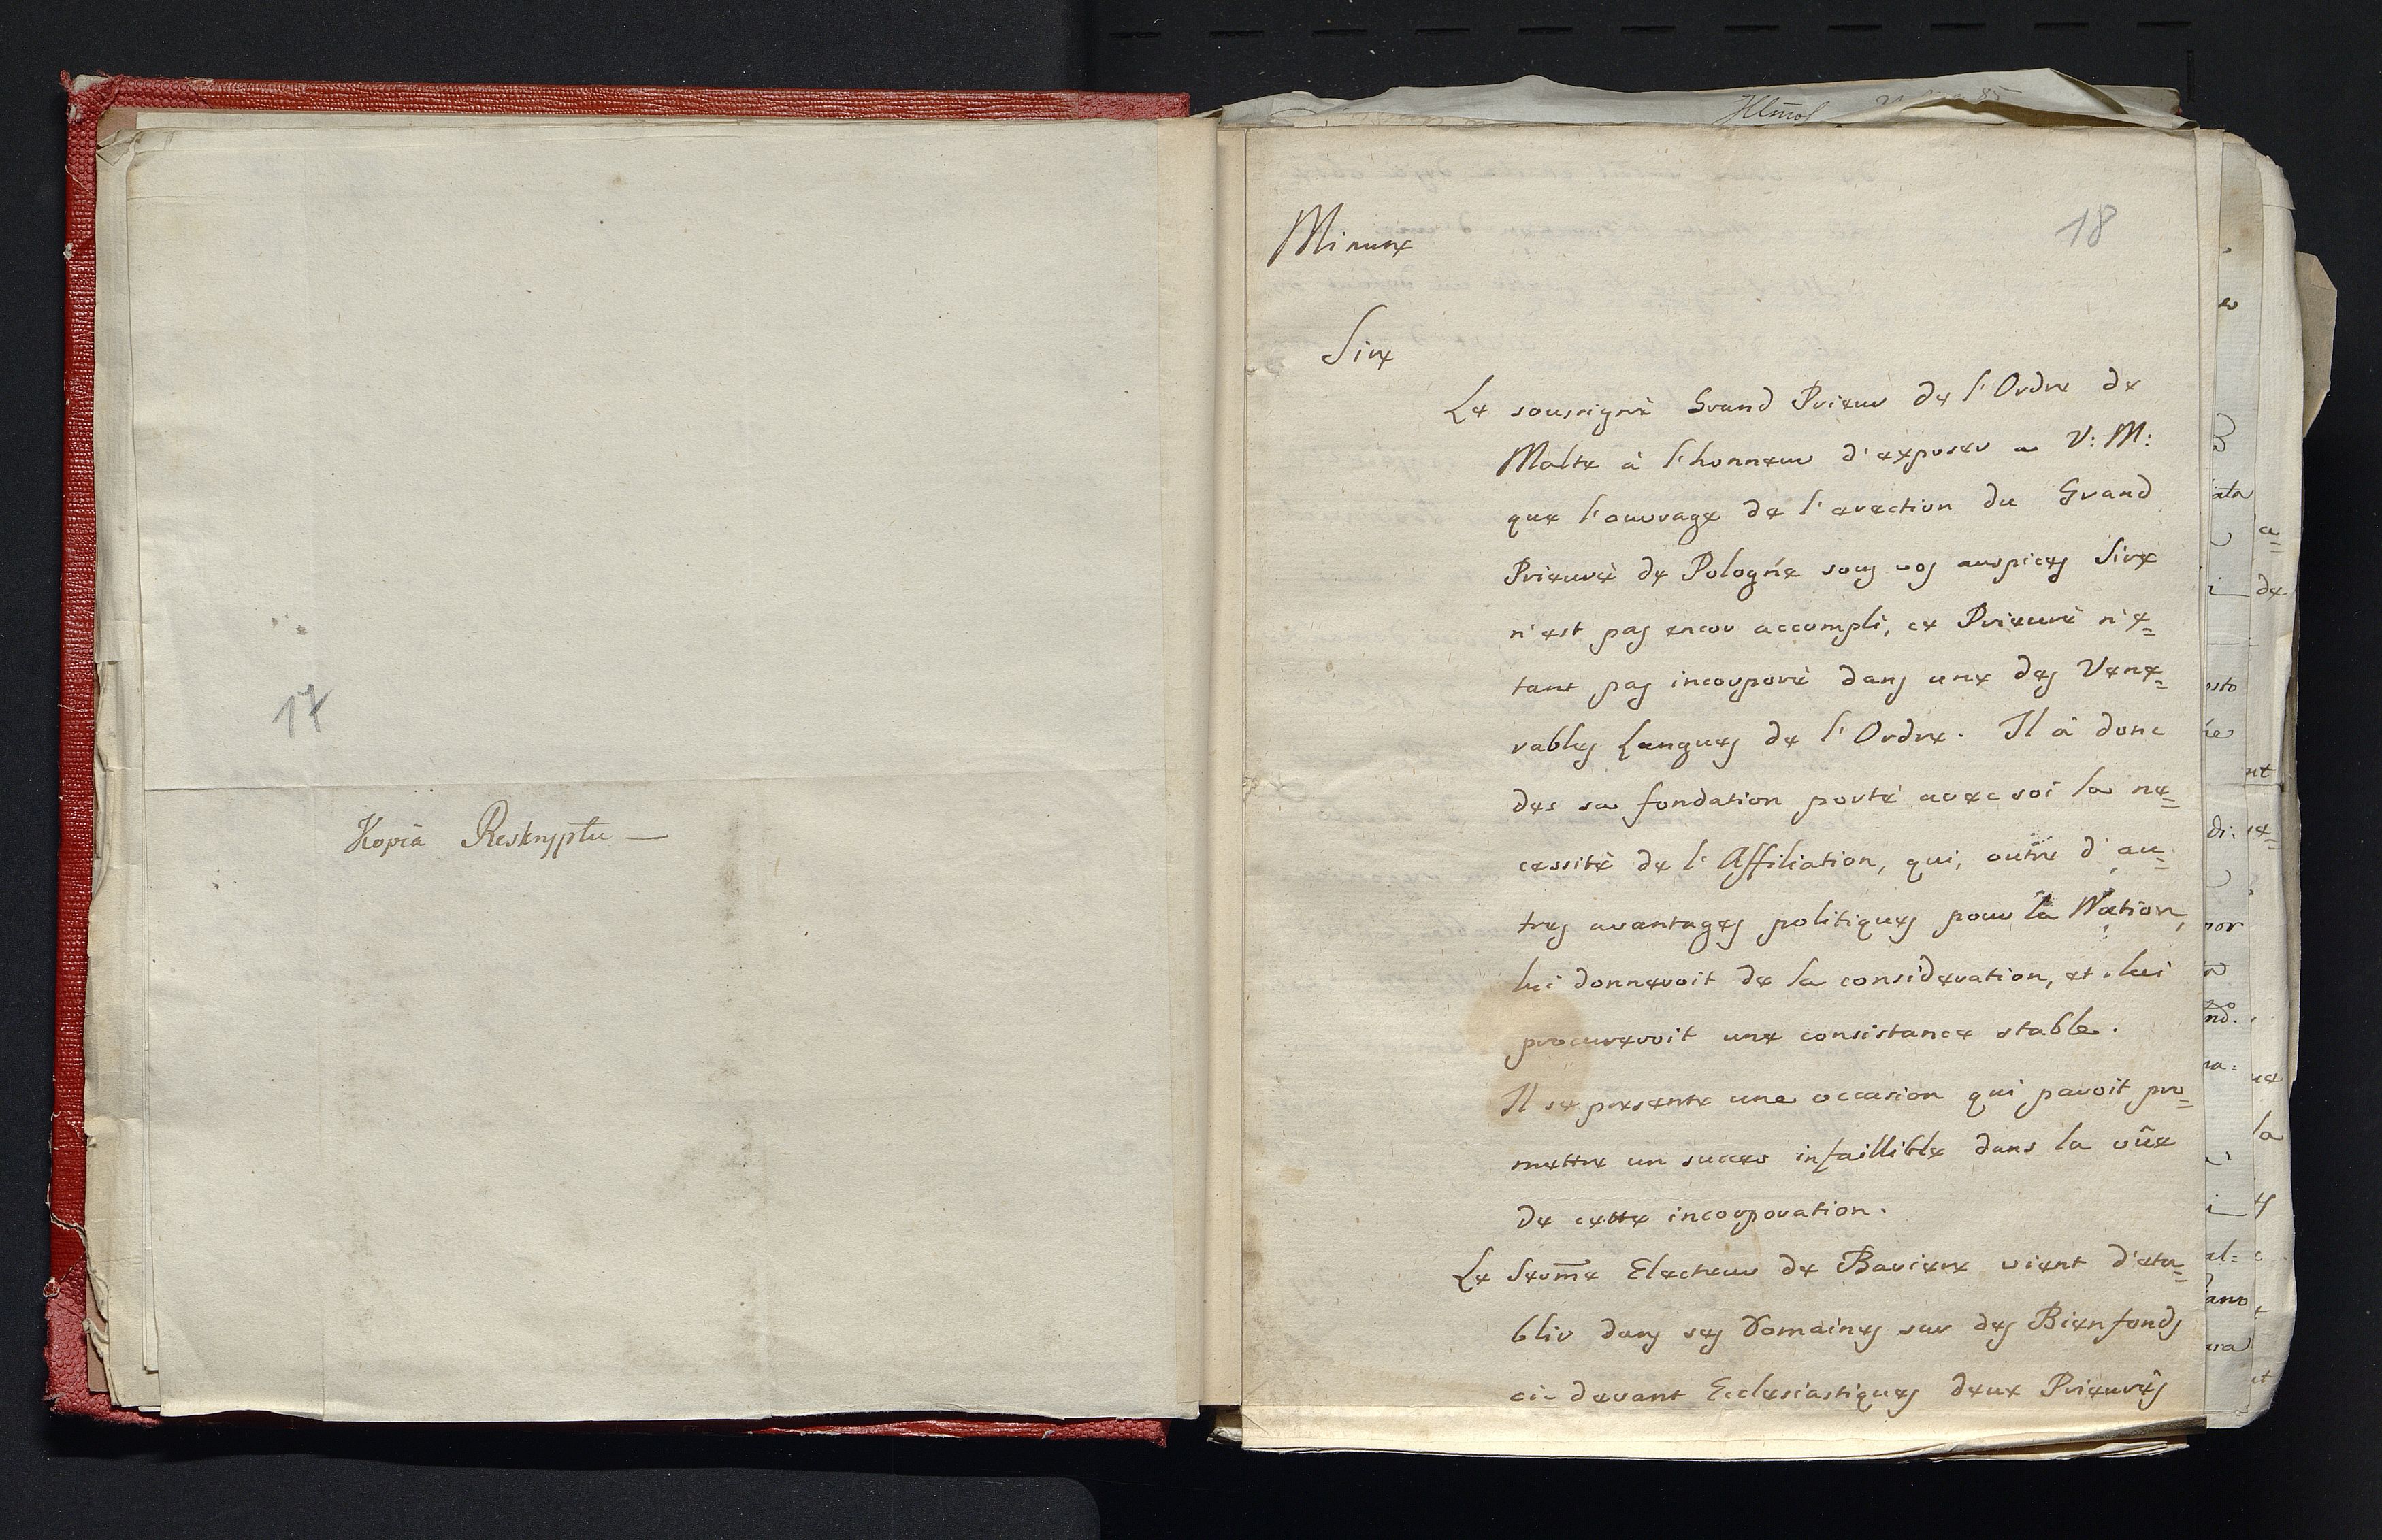 17
Kopia Reskryptu —
18
Minute
Sire
Le soussigné Grand Prieur de l'Ordre de
Malte à l'honneur d'exposer a V: M:
que l'ouvrage de l'erection du Grand
Prieuré de Pologne sous vos auspices Sire
n'est pas encor accompli, ce Prieuré n'e=
tant pas incorporé dans une des Vene=
rables Langues de l'Ordre. Il à donc
des sa fondation porté avec soi la ne=
cessité de l'Affiliation, qui, outre d'au=
tres avantages politiques pour la Nation,
lui donneroit de la consideration, et lui
procureroit une consistance stable.
Il se presente une occasion qui paroit pro=
mettre un succes infaillible dans la vûe
de cette incorporation.
Le Serm̄e Electeur de Baviere vient d'eta=
blir dans ses Domaines sur des Bienfonds
ci-devant Ecclesiastiques deux Prieurés